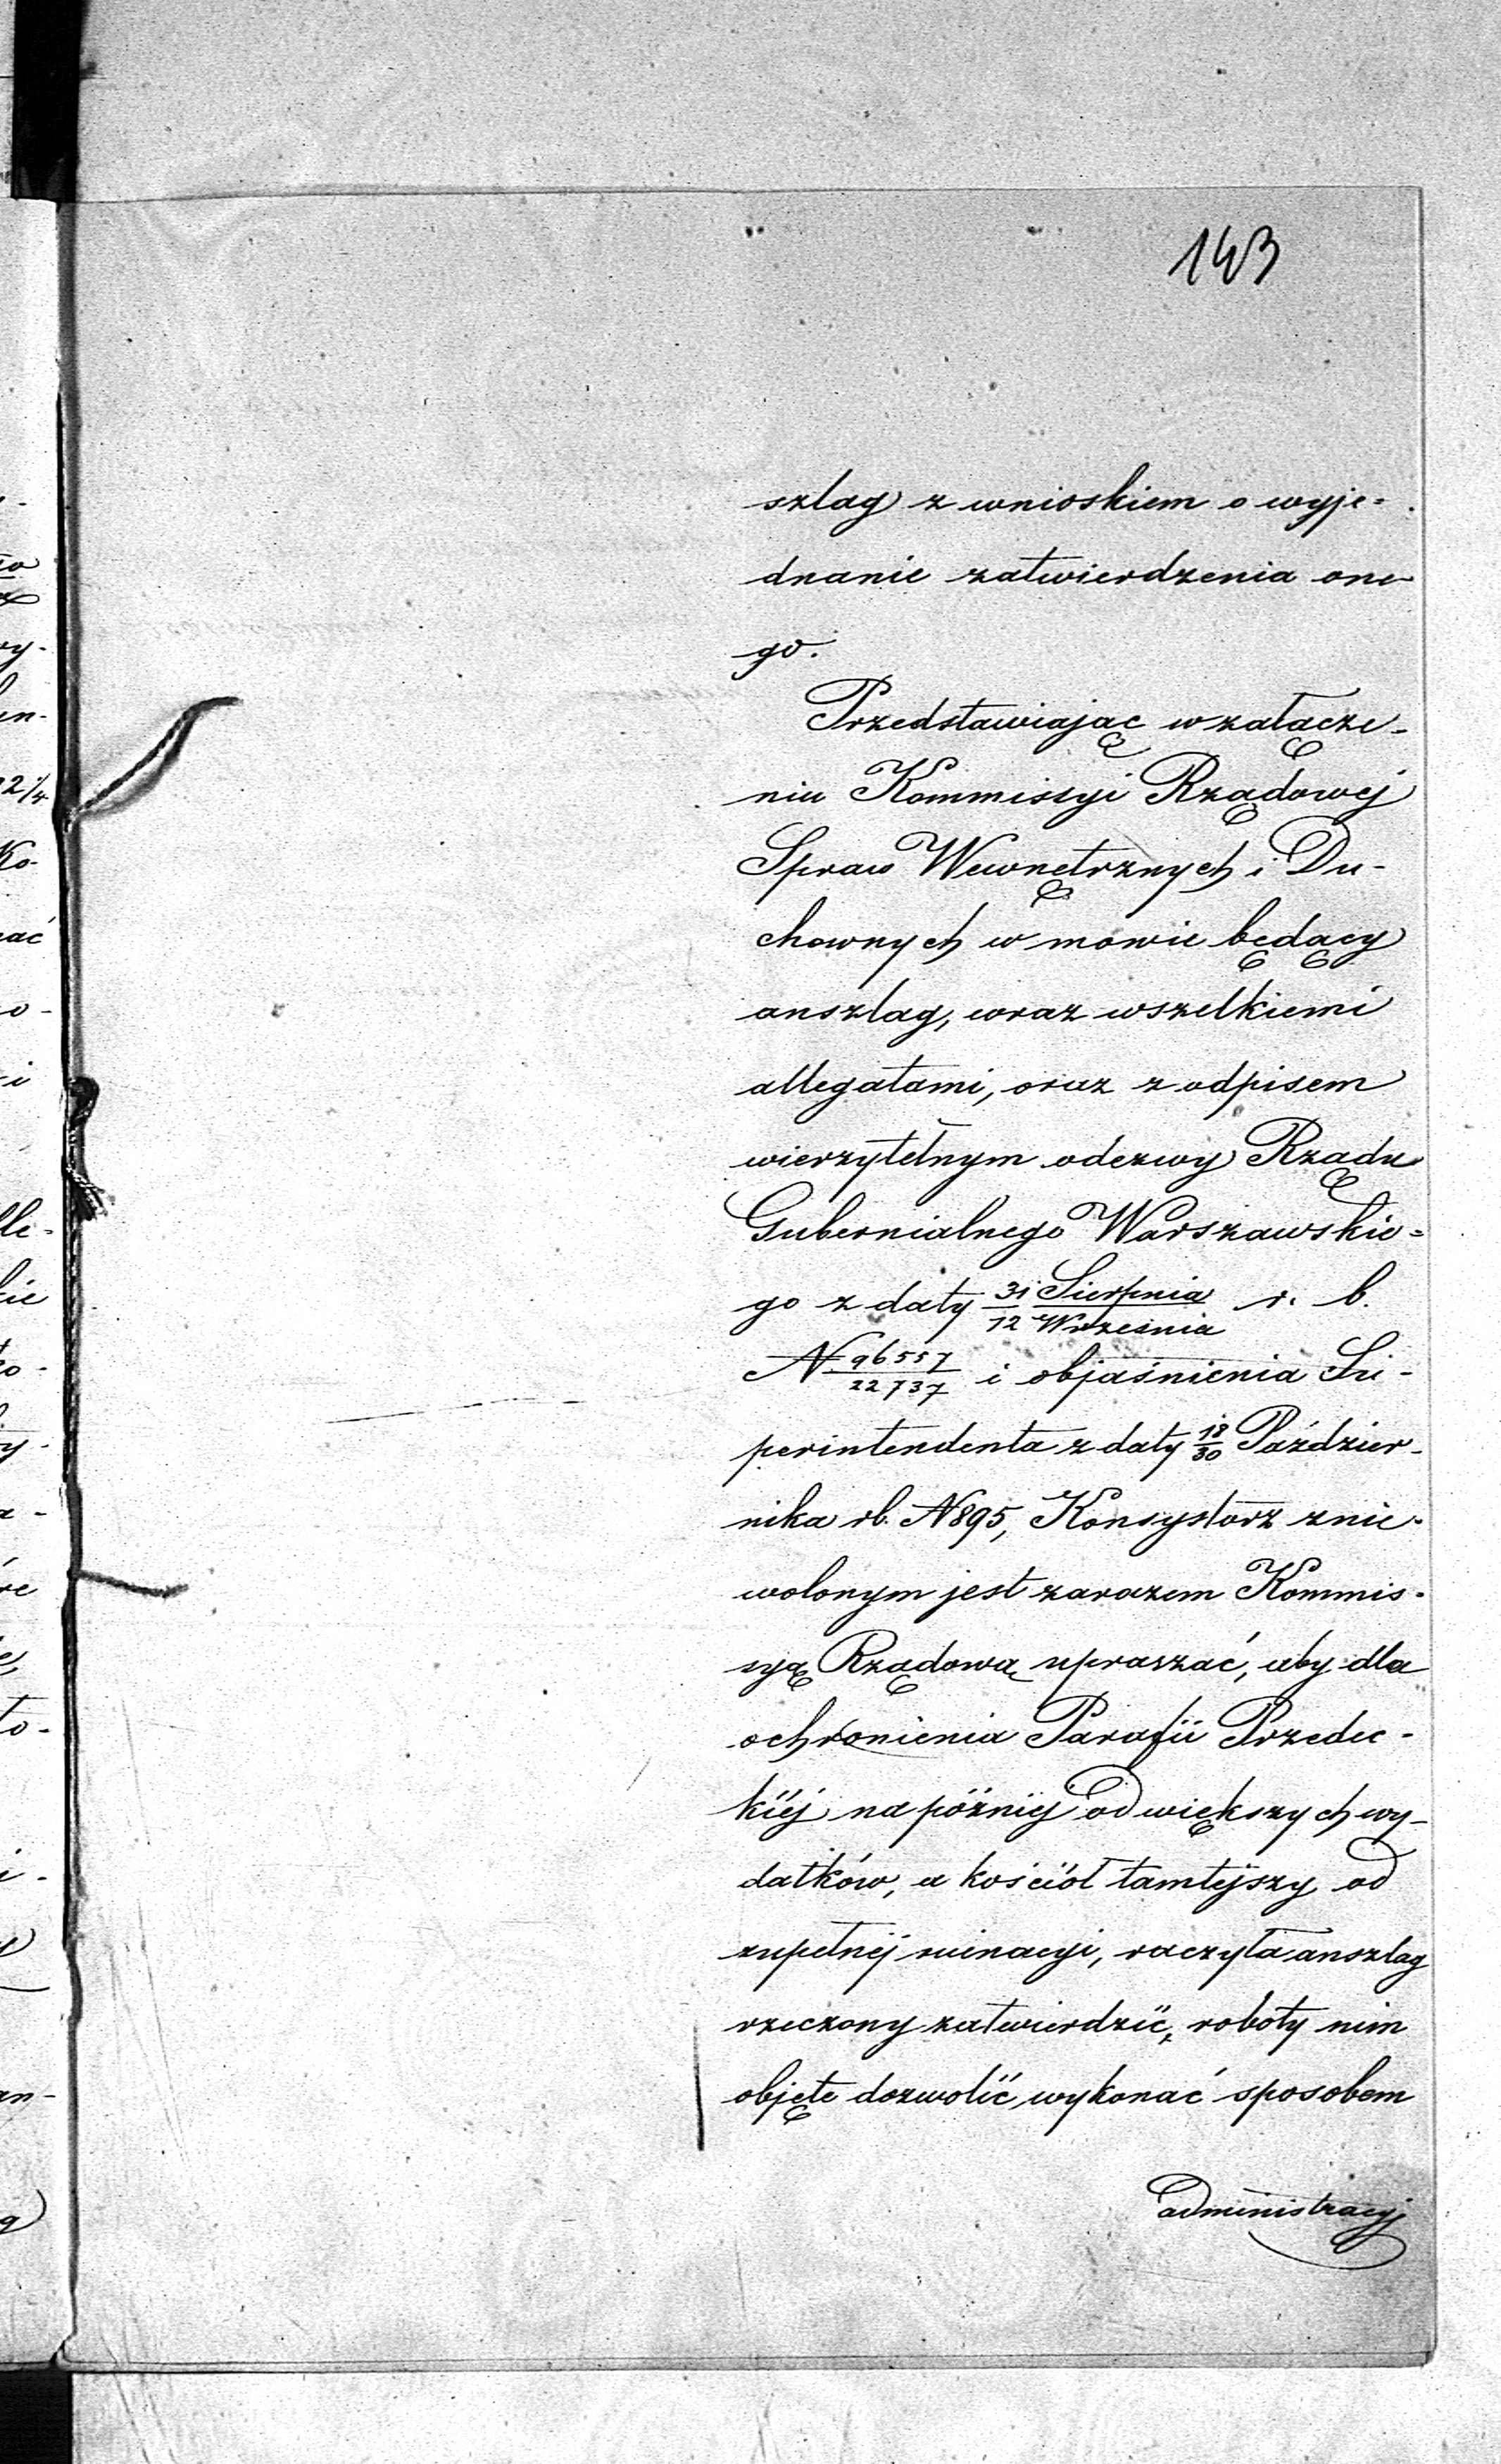 143
szlag z wnioskiem o wyje=
dnanie zatwierdzenia one
go.
Przedstawiając w załącze-
niu Kommissyi Rządowéj
Spraw Wewnętrznych i Du-
chownych w mowie będący
anszlag, wraz wszelkiemi
allegatami, oraz z odpisem
wierzytelnym odezwy Rządu
Gubernialnego Warszawskie=
go z daty 31 Sierpnia / 12 Września r. b.
N 96557 / 22737 i objaśnienia Su-
perintendenta z daty 18/30 Paździer-
nika rb. N 895, Konsystorz znie-
wolonym jest zarazem Kommis-
syą Rządową upraszać, aby dla
ochronienia Parafii Przedec-
kiéj na późniéj od większych wy-
datków, a kościół tamtéjszy od
zupełnéj ruinacyi, raczyła anszlag
rzeczony zatwierdzić, roboty nim
objęte dozwolić wykonać sposobem
administracyj
2 1/4